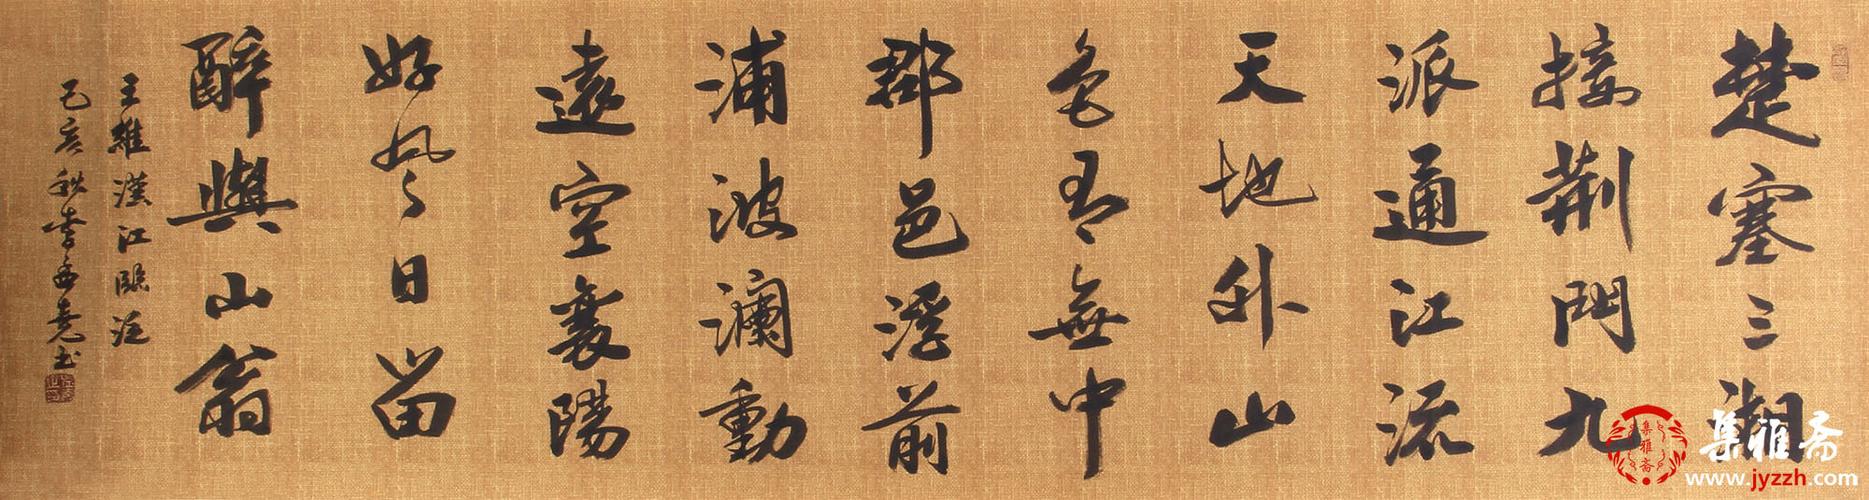 楚塞三湘
接荆門九
派通江流
天地外山
色有無中
郡邑浮前
浦波瀾動
遠空襄陽
好風日留
醉與山翁
王維漢江臨泛
己亥秋李堯書
集雅斋
集雅斋
www.jyzzh.com